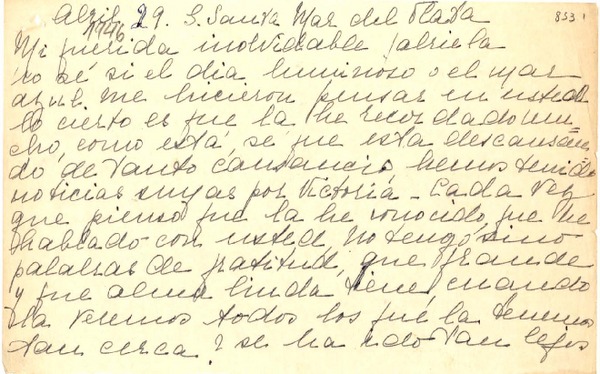 Abril 29. S. Santa Mar del Plata
1946
853 1
Mi querida inolvidable Gabriela
no sé si el dia luminoso o el mar
azul me hicieron pensar en usted
lo cierto es que la he recordado mu
cho, como está, se que esta descansan
do, de tanto cansancio, hemos tenido
noticias suyas por Victoria - Cada vez
que pienso que la he conocido, que he
hablado con usted, no tengo sino
palabras de gratitud, que grande
y que alma linda tiene, cuando
la veremos todos los que la tenemos
tan cerca? se ha ido tan lejos